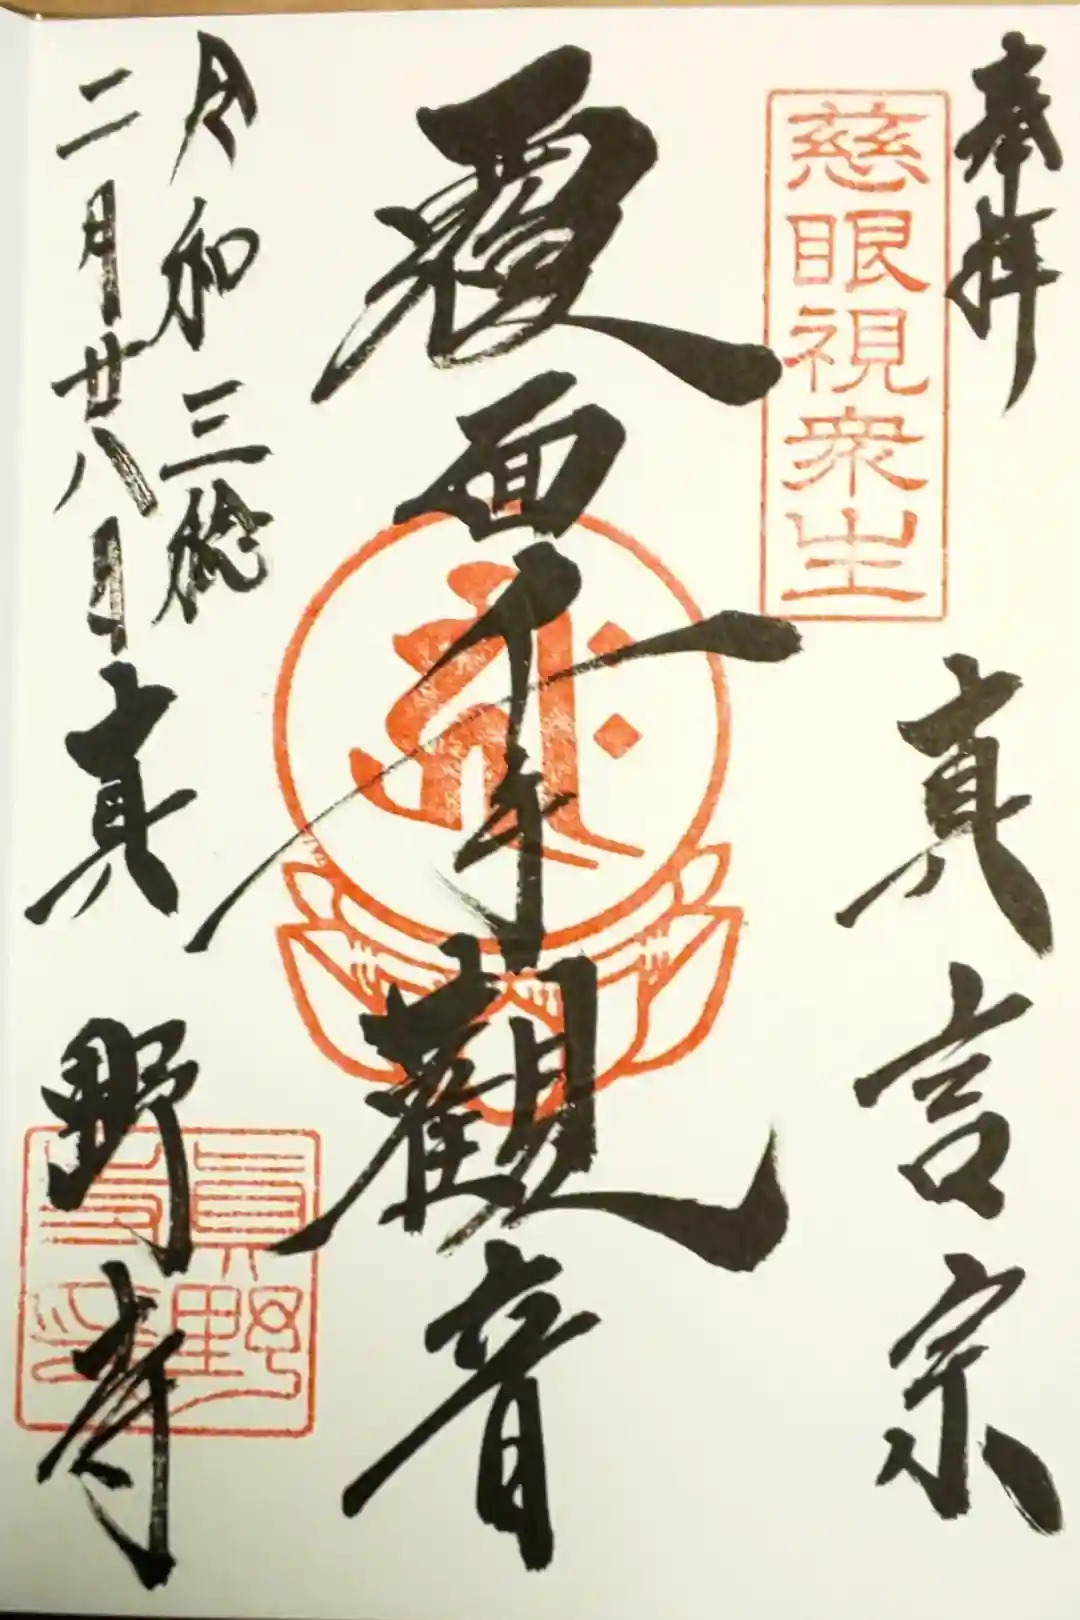 奉拝
慈眼視衆生
真言宗
覆面千手觀音
令和三稔
二月廿八日
真野寺
眞野寺印